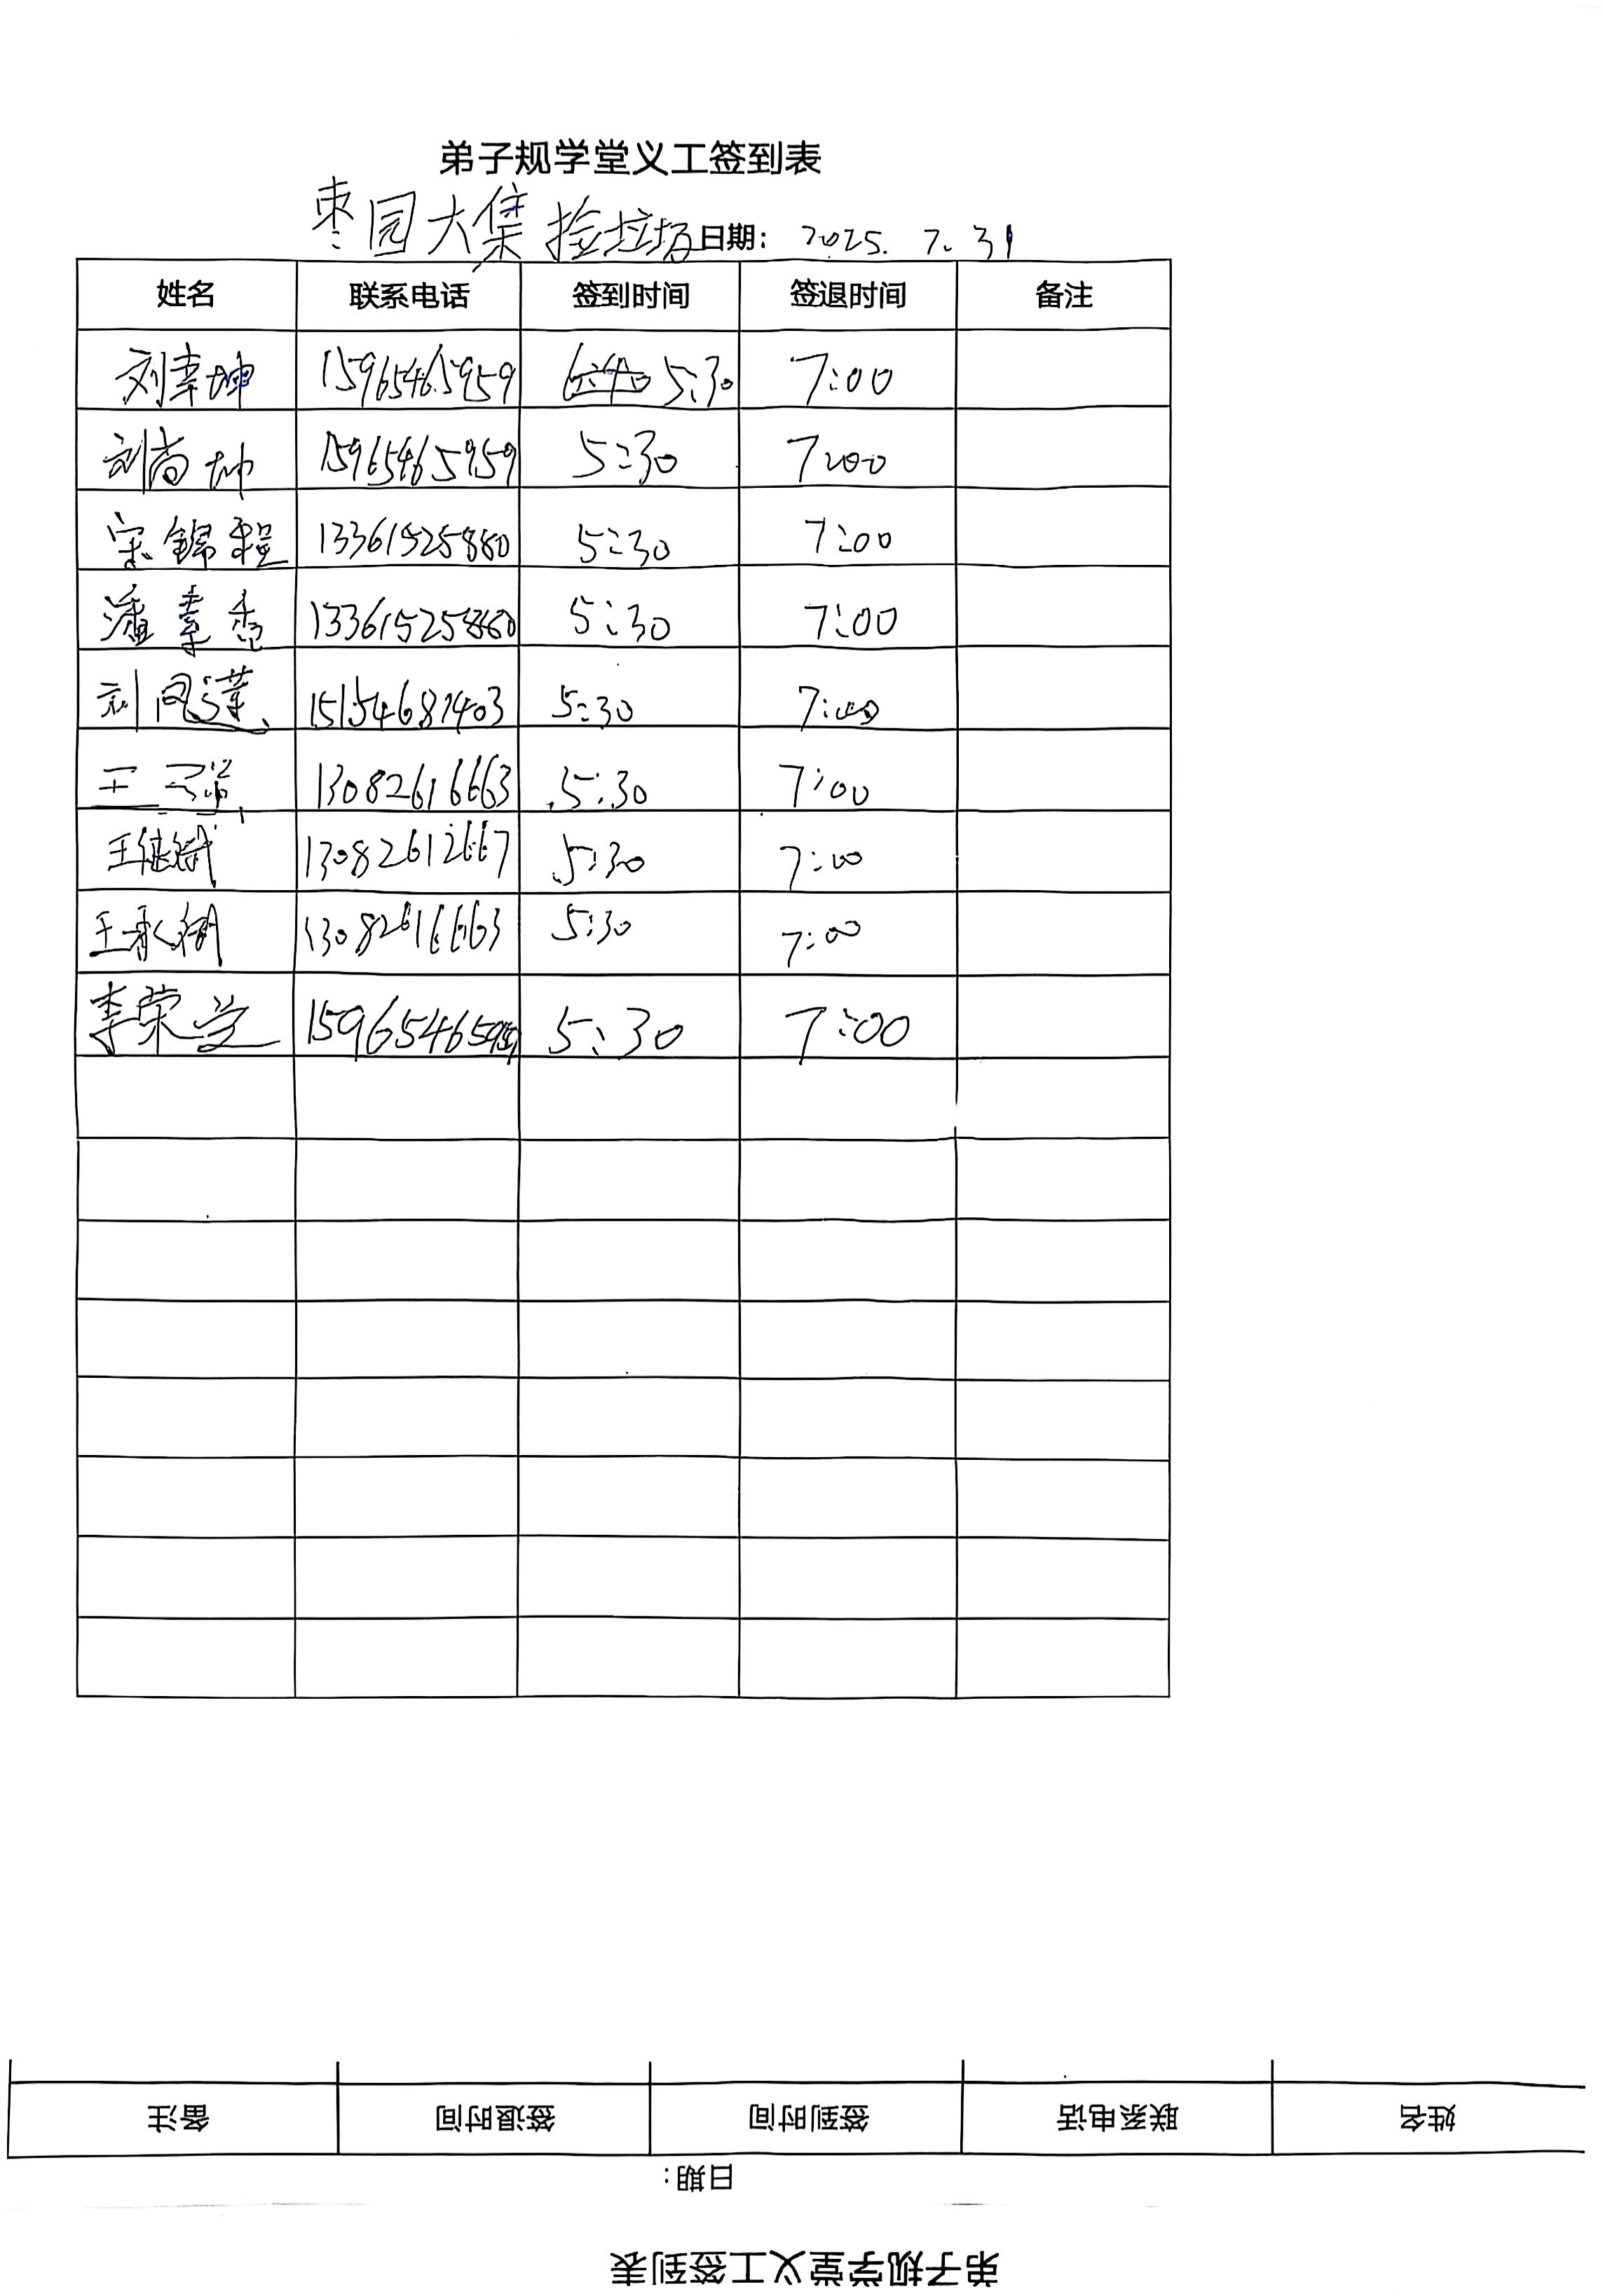 弟子规学堂义工签到表
枣园大集 捡垃圾 日期： 2025. 7. 31
姓名 联系电话 签到时间 签退时间 备注
刘幸坤 15965465959 5:30 7:00
刘尚坤 15965465959 5:30 7:00
宋锦程 13361525880 5:30 7:00
潘素香 13361525880 5:30 7:00
刘凤莲 15154687403 5:30 7:00
王 13082616663 5:30 7:00
王继斌 13082612667 5:30 7:00
王永 13082616663 5:30 7:00
李荣兰 15965465959 5:30 7:00
备注 签退时间 签到时间 联系电话 姓名
日期：
弟子规学堂义工签到表